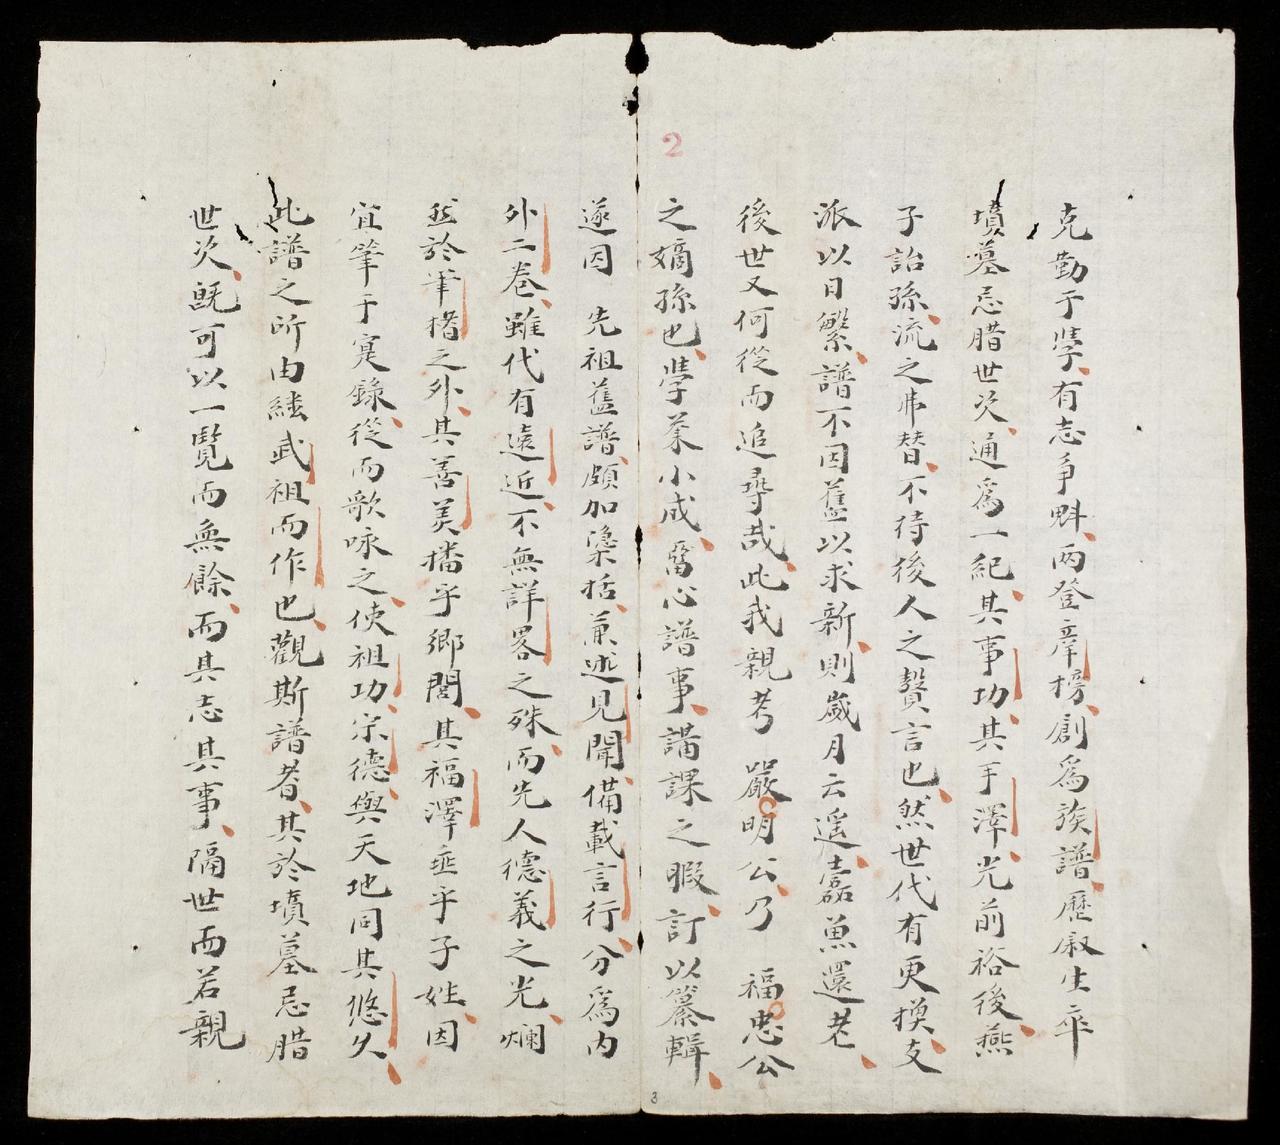 2
克勤于學有志争魁兩登庠榜創爲族譜歷叙生卒
墳墓忌腊世次通爲一紀其事功其手澤光前裕後燕
子詒孫流之弗替不待後人之贅言也然世代有更換支
派以日繁譜不因舊以求新則歲月云遥蠹魚還老
後世又何從而追尋哉此我親考 嚴明公乃 福忠公
之嫡孫也學業小成畱心譜事講課之暇訂以纂輯
遂因 先祖舊譜頗加檃括兼述見聞備載言行分爲内
外二卷雖代有遠近不無詳畧之殊而先人德義之光爛
然於筆楮之外其善美播乎鄉閭其福澤垂乎子姓因
宜筆于寔錄從而歌咏之使祖功宗德與天地同其悠久
此譜之所由繩武祖而作也觀斯譜者其於墳墓忌腊
世次既可以一覽而無餘而其志其事隔世而若親
3